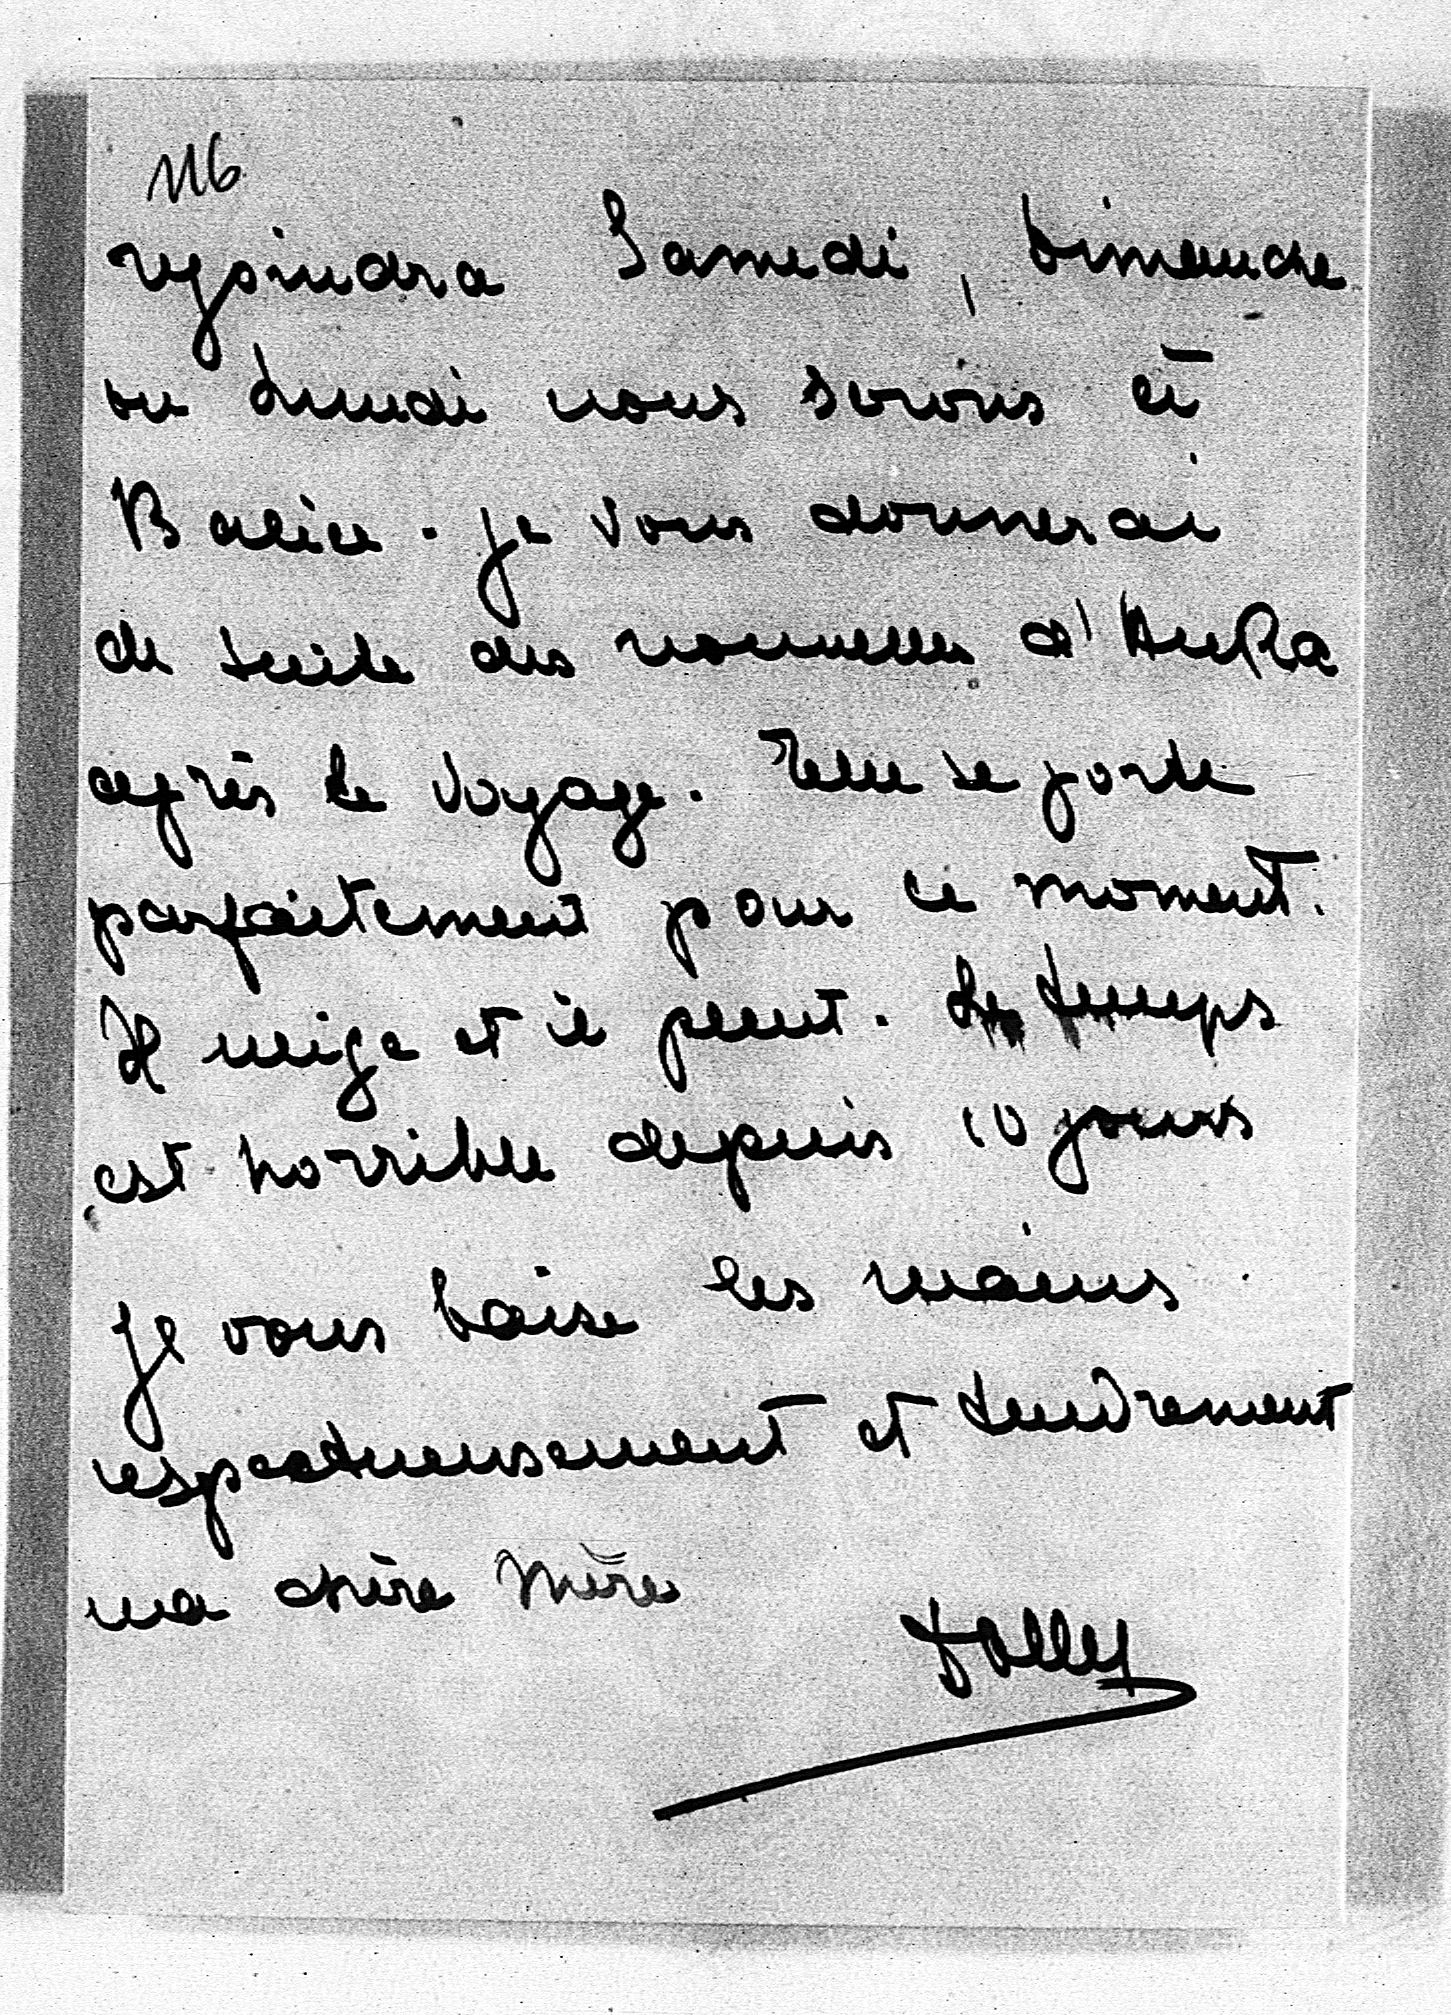 116
rejoindra Samedi, Dimanche
ou Lundi nous serons à
Balice. Je vous donnerai
de suite des nouvelles d'Anka
après le voyage. Elle se porte
parfaitement pour ce moment.
Il neige et il pleut. Le temps
est horrible depuis 10 jours
Je vous baise les mains
respectueusement et tendrement
ma chère Mère
Dolly